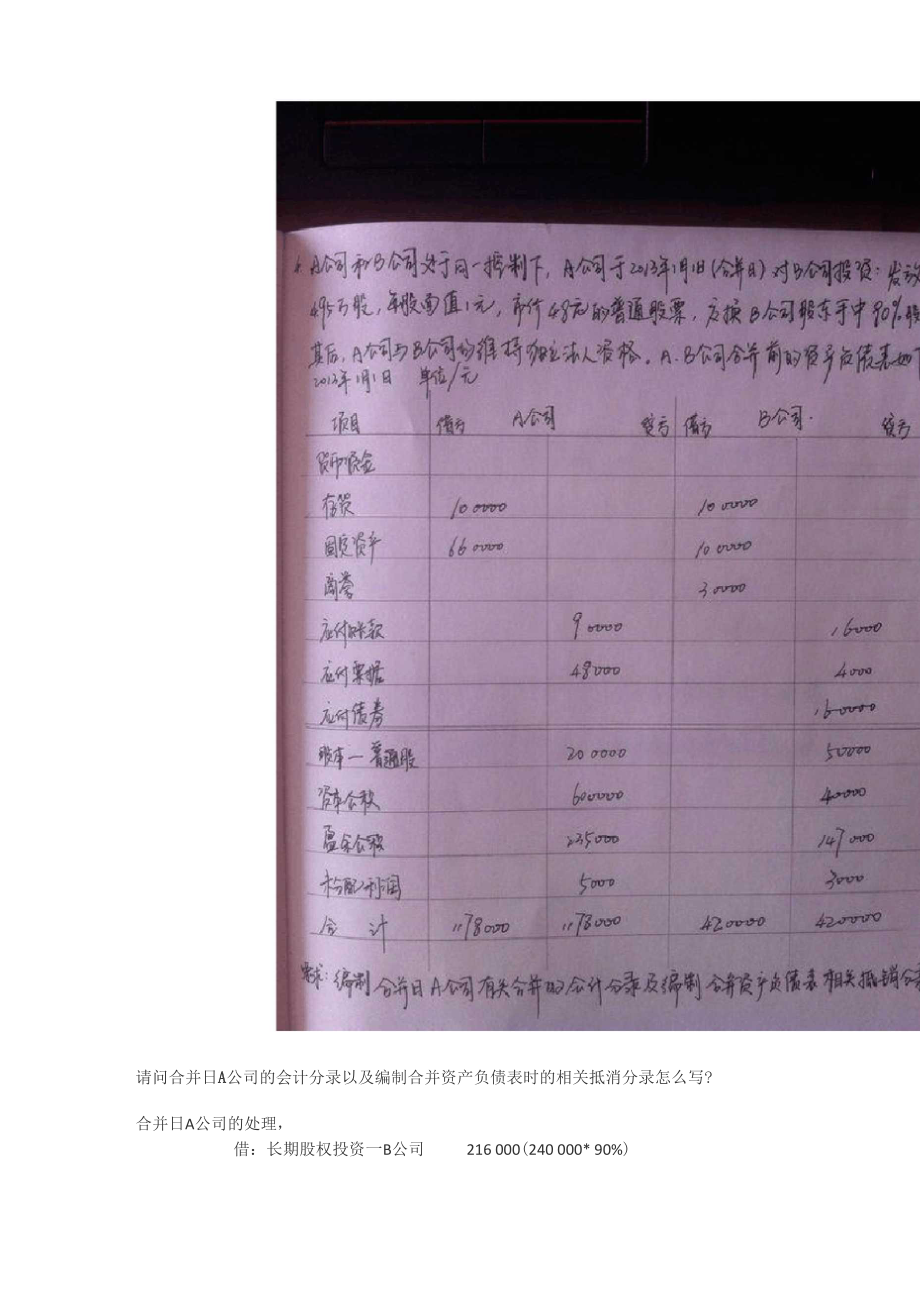 A公司和B公司处于同一控制下，A公司于2013年1月1日(合并日)对B公司投资：发放
495万股，每股面值1元，市价48元的普通股票，交换B公司股东手中90%股
其后，A公司与B公司均维持独立法人资格。A.B公司合并前的资产负债表如下
2013年1月1日 单位/元
项目 借方 A公司 贷方 借方 B公司 贷方
货币资金
存货 100000 100000
固定资产 660000 100000
商誉 30000
应付账款 90000 16000
应付票据 48000 4000
应付债券 160000
股本一普通股 200000 50000
资本公积 600000 40000
盈余公积 235000 147000
未分配利润 5000 3000
合 计 1178000 1178000 420000 420000
要求：编制合并日A公司有关合并的会计分录及编制合并资产负债表相关抵销分录
请问合并日A公司的会计分录以及编制合并资产负债表时的相关抵消分录怎么写?
合并日A公司的处理，
借：长期股权投资一B公司 216 000(240 000* 90%)